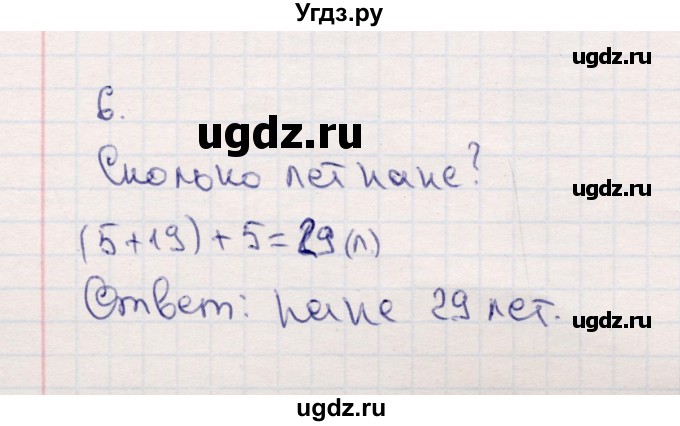 Угдз.ру
ugdz.ru
6.
ugdz.ru
Сколько лет папе?
ugdz.ru
(5+19)+5=29(л.)
ugdz.ru
Ответ: папе 29 лет.
ugdz.ru
ugdz.ru